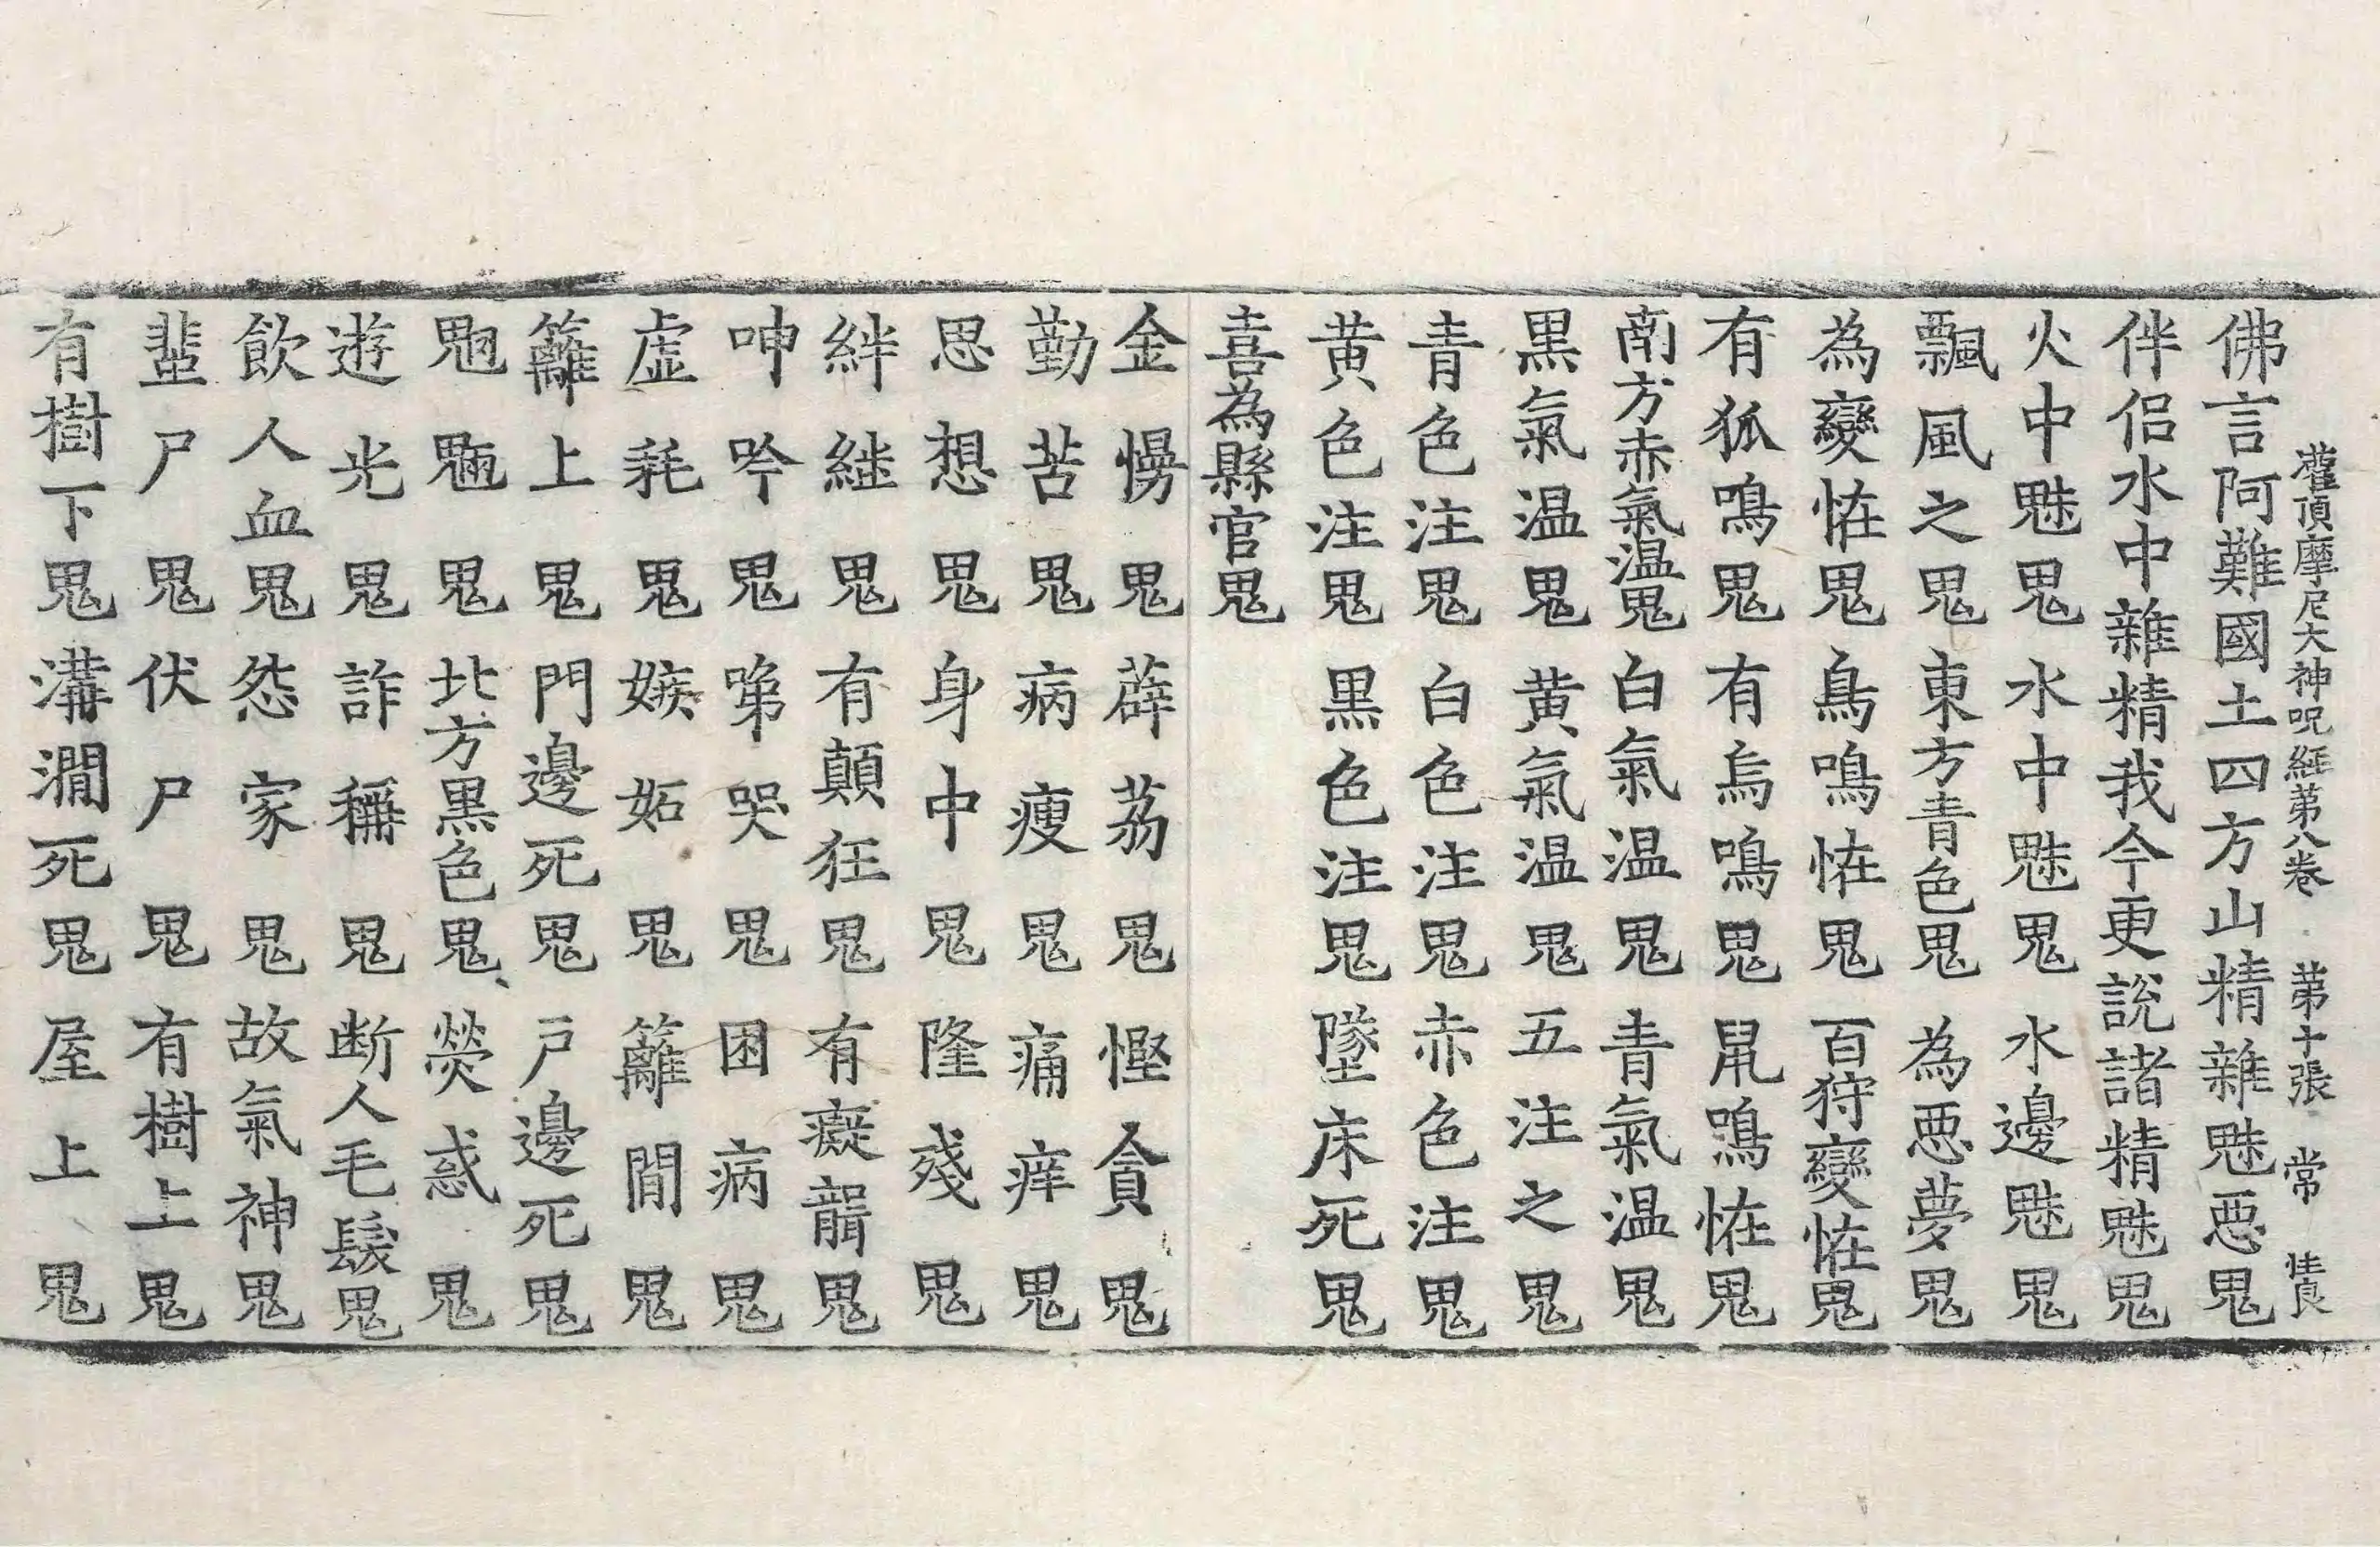 灌頂摩尼大神呪經苐八卷 苐十張 常
佛言阿難國土四方山精雜魅惡鬼
伴侶水中雜精我今更說諸精魅鬼
火中魅鬼 水中魅鬼 水邊魅鬼
飄風之鬼 東方青色鬼 為惡夢鬼
為變恠鬼 鳥鳴恠鬼 百狩變恠鬼
有狐鳴鬼 有烏鳴鬼 鼠鳴恠鬼
南方赤氣温鬼 白氣温鬼 青氣温鬼
黒氣温鬼 黄氣温鬼 五注之鬼
青色注鬼 白色注鬼 赤色注鬼
黄色注鬼 黒色注鬼 墜床死鬼
喜為縣官鬼
金㑃鬼 薜荔鬼 慳貪鬼
勤苦鬼 病瘦鬼 痛痒鬼
思想鬼 身中鬼 隆殘鬼
絆縫鬼 有顛狂鬼 有癡聾鬼
呻吟鬼 啼哭鬼 困病鬼
虛耗鬼 嫉妬鬼 籬間鬼
籬上鬼 門邊死鬼 戶邊死鬼
魍魎鬼 北方黒色鬼 熒惑鬼
遊光鬼 詐稱鬼 断人毛髮鬼
飲人血鬼 怨家鬼 故氣神鬼
蜚尸鬼 伏尸鬼 有樹上鬼
有樹下鬼 溝澗死鬼 屋上鬼